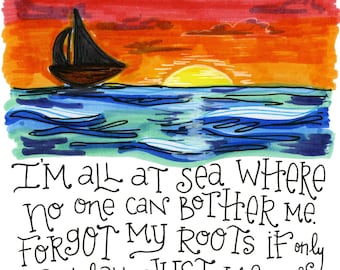 I'M ALL AT SEA WHERE
NO ONE CAN BOTHER ME
FORGOT MY ROOTS IF only